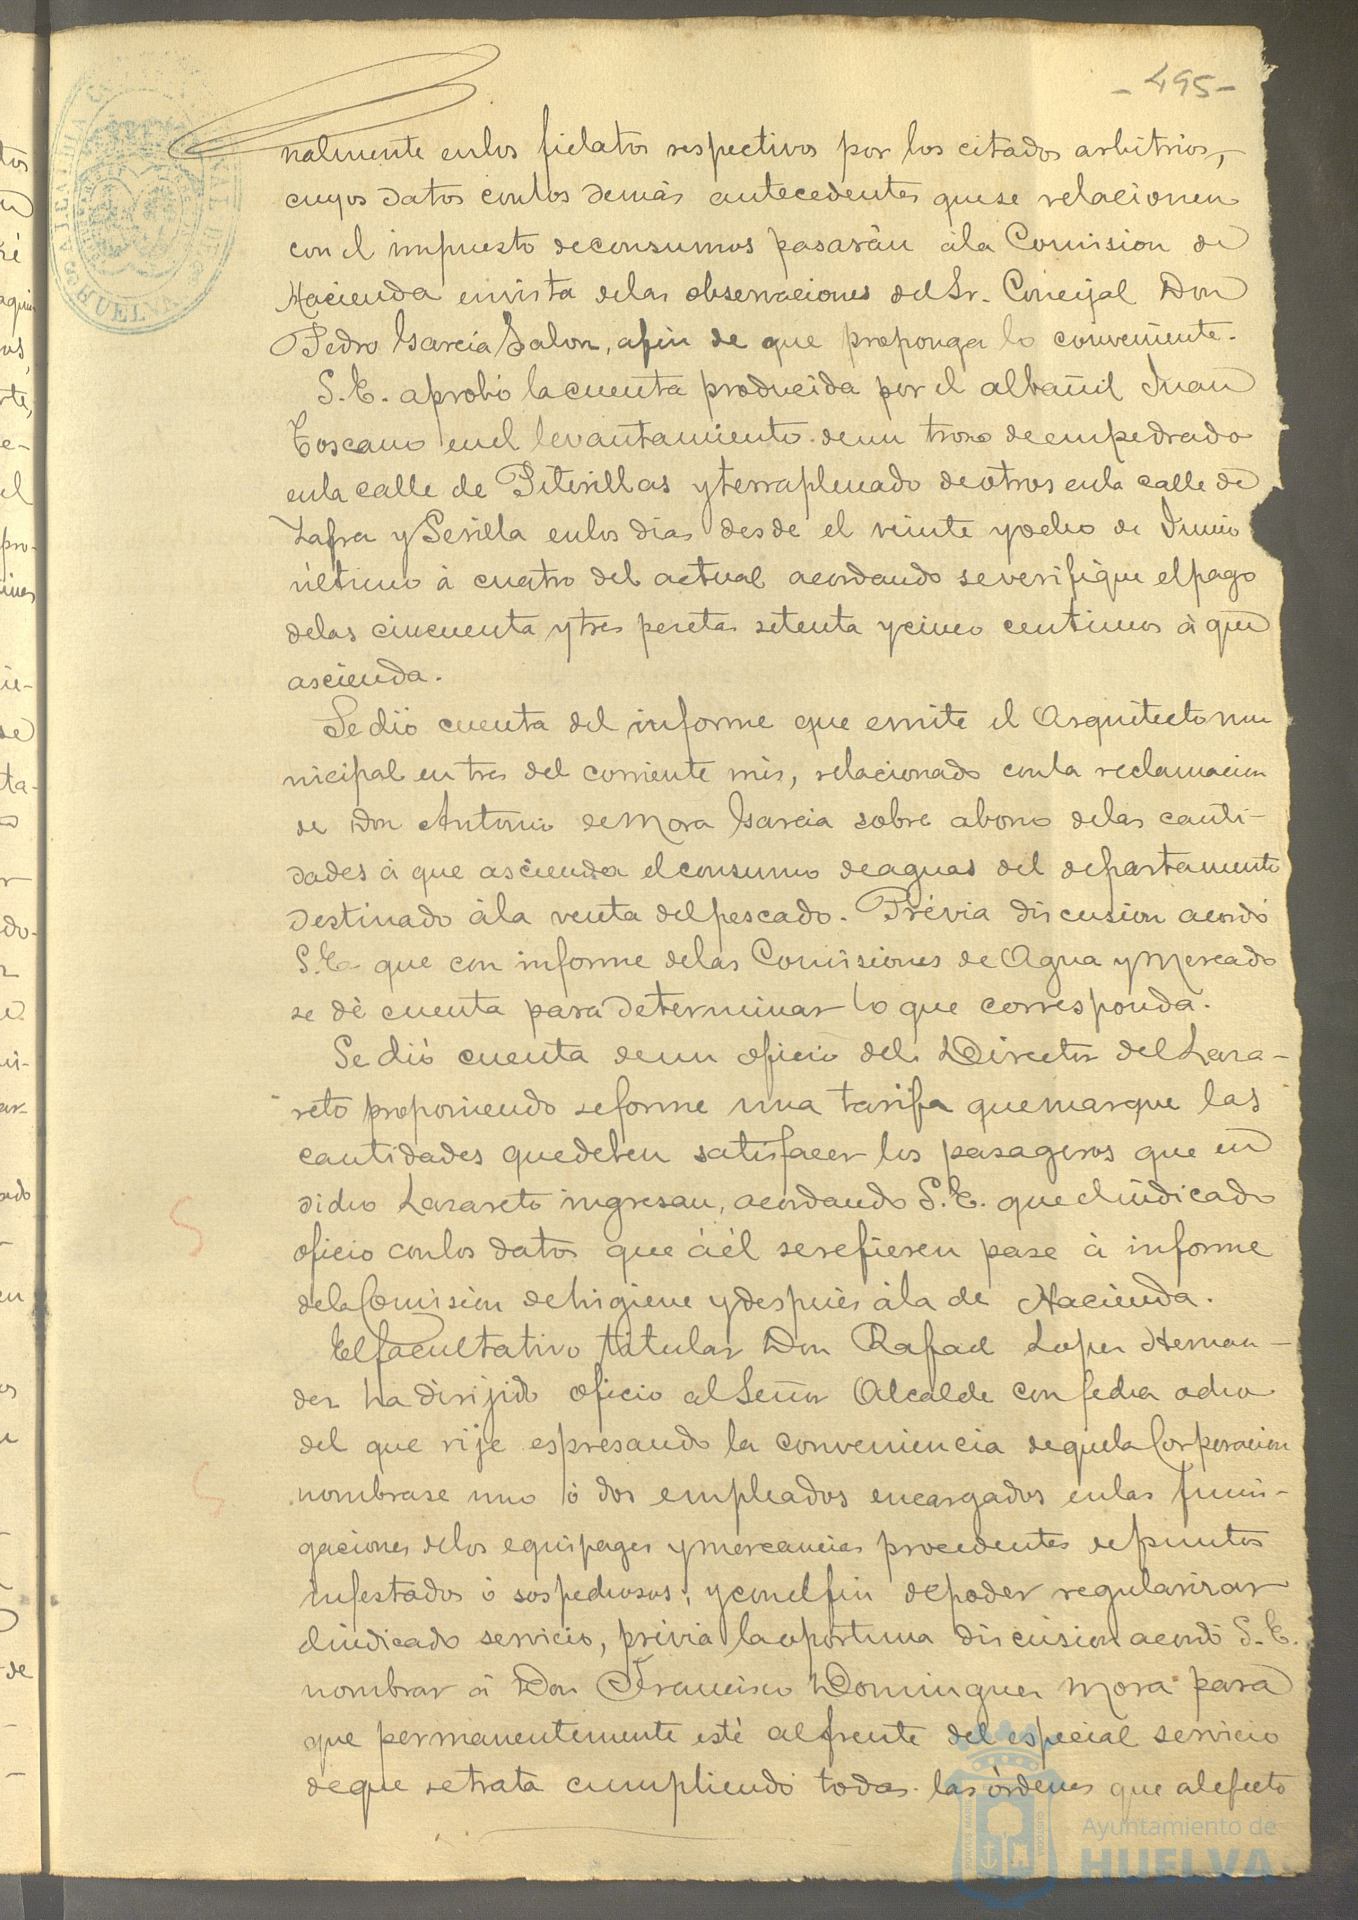 - 495 -
nalmente en los fielatos respectivos por los citados arbitrios,
cuyos datos con los demás antecedentes que se relacionen
con el impuesto de consumos pasarán à la Comision de
Hacienda en vista de las observaciones del Sr. Concejal Don
Pedro Garcia Jalon, afin de que proponga lo conveniente.
S. E. aprobó la cuenta producida por el albañil Juan
Toscano en el levantamiento de un trozo de empedrado
en la calle de Piterillas y terraplenado de otros en la calle de
Zafra y Sevilla en los dias desde el veinte y ocho de Junio
último à cuatro del actual acordando se verifique el pago
de las cincuenta y tres pesetas setenta y cinco centimos à que
ascienda.
Se dió cuenta del informe que emite el Arquitecto mu
nicipal en tres del corriente mes, relacionado con la reclamacion
de Don Antonio de Mora Garcia sobre abono de las canti-
dades à que ascienda el consumo de aguas del departamento
destinado à la venta del pescado. Prévia discusion acordó
S. E. que con informe de las Comisiones de Agua y Mercado
se dé cuenta para determinar lo que corresponda.
Se dió cuenta de un oficio del Director del Laza-
reto proponiendo se forme una tarifa que marque las
cantidades que deben satisfacer los pasageros que en
dicho Lazareto ingresan, acordando S. E. que el indicado
oficio con los datos que à él se refieren pase à informe
de la Comision de higiene y despues à la de Hacienda.
El facultativo titular Don Rafael Lopez Hernan-
dez ha dirijido oficio al Señor Alcalde con fecha ocho
del que rije espresando la conveniencia de que la Corporacion
nombrase uno ó dos empleados encargados en las fumi-
gaciones de los equipages y mercancias procedentes de puntos
infestados ó sospechosos; y con el fin de poder regularizar
el indicado servicio, prévia la oportuna discusion acordó S. E.
nombrar à Don Francisco Dominguez Mora para
que permanentemente esté al frente del especial servicio
de que se trata cumpliendo todas las órdenes que al efecto
HUELVA
Ayuntamiento de
HUELVA